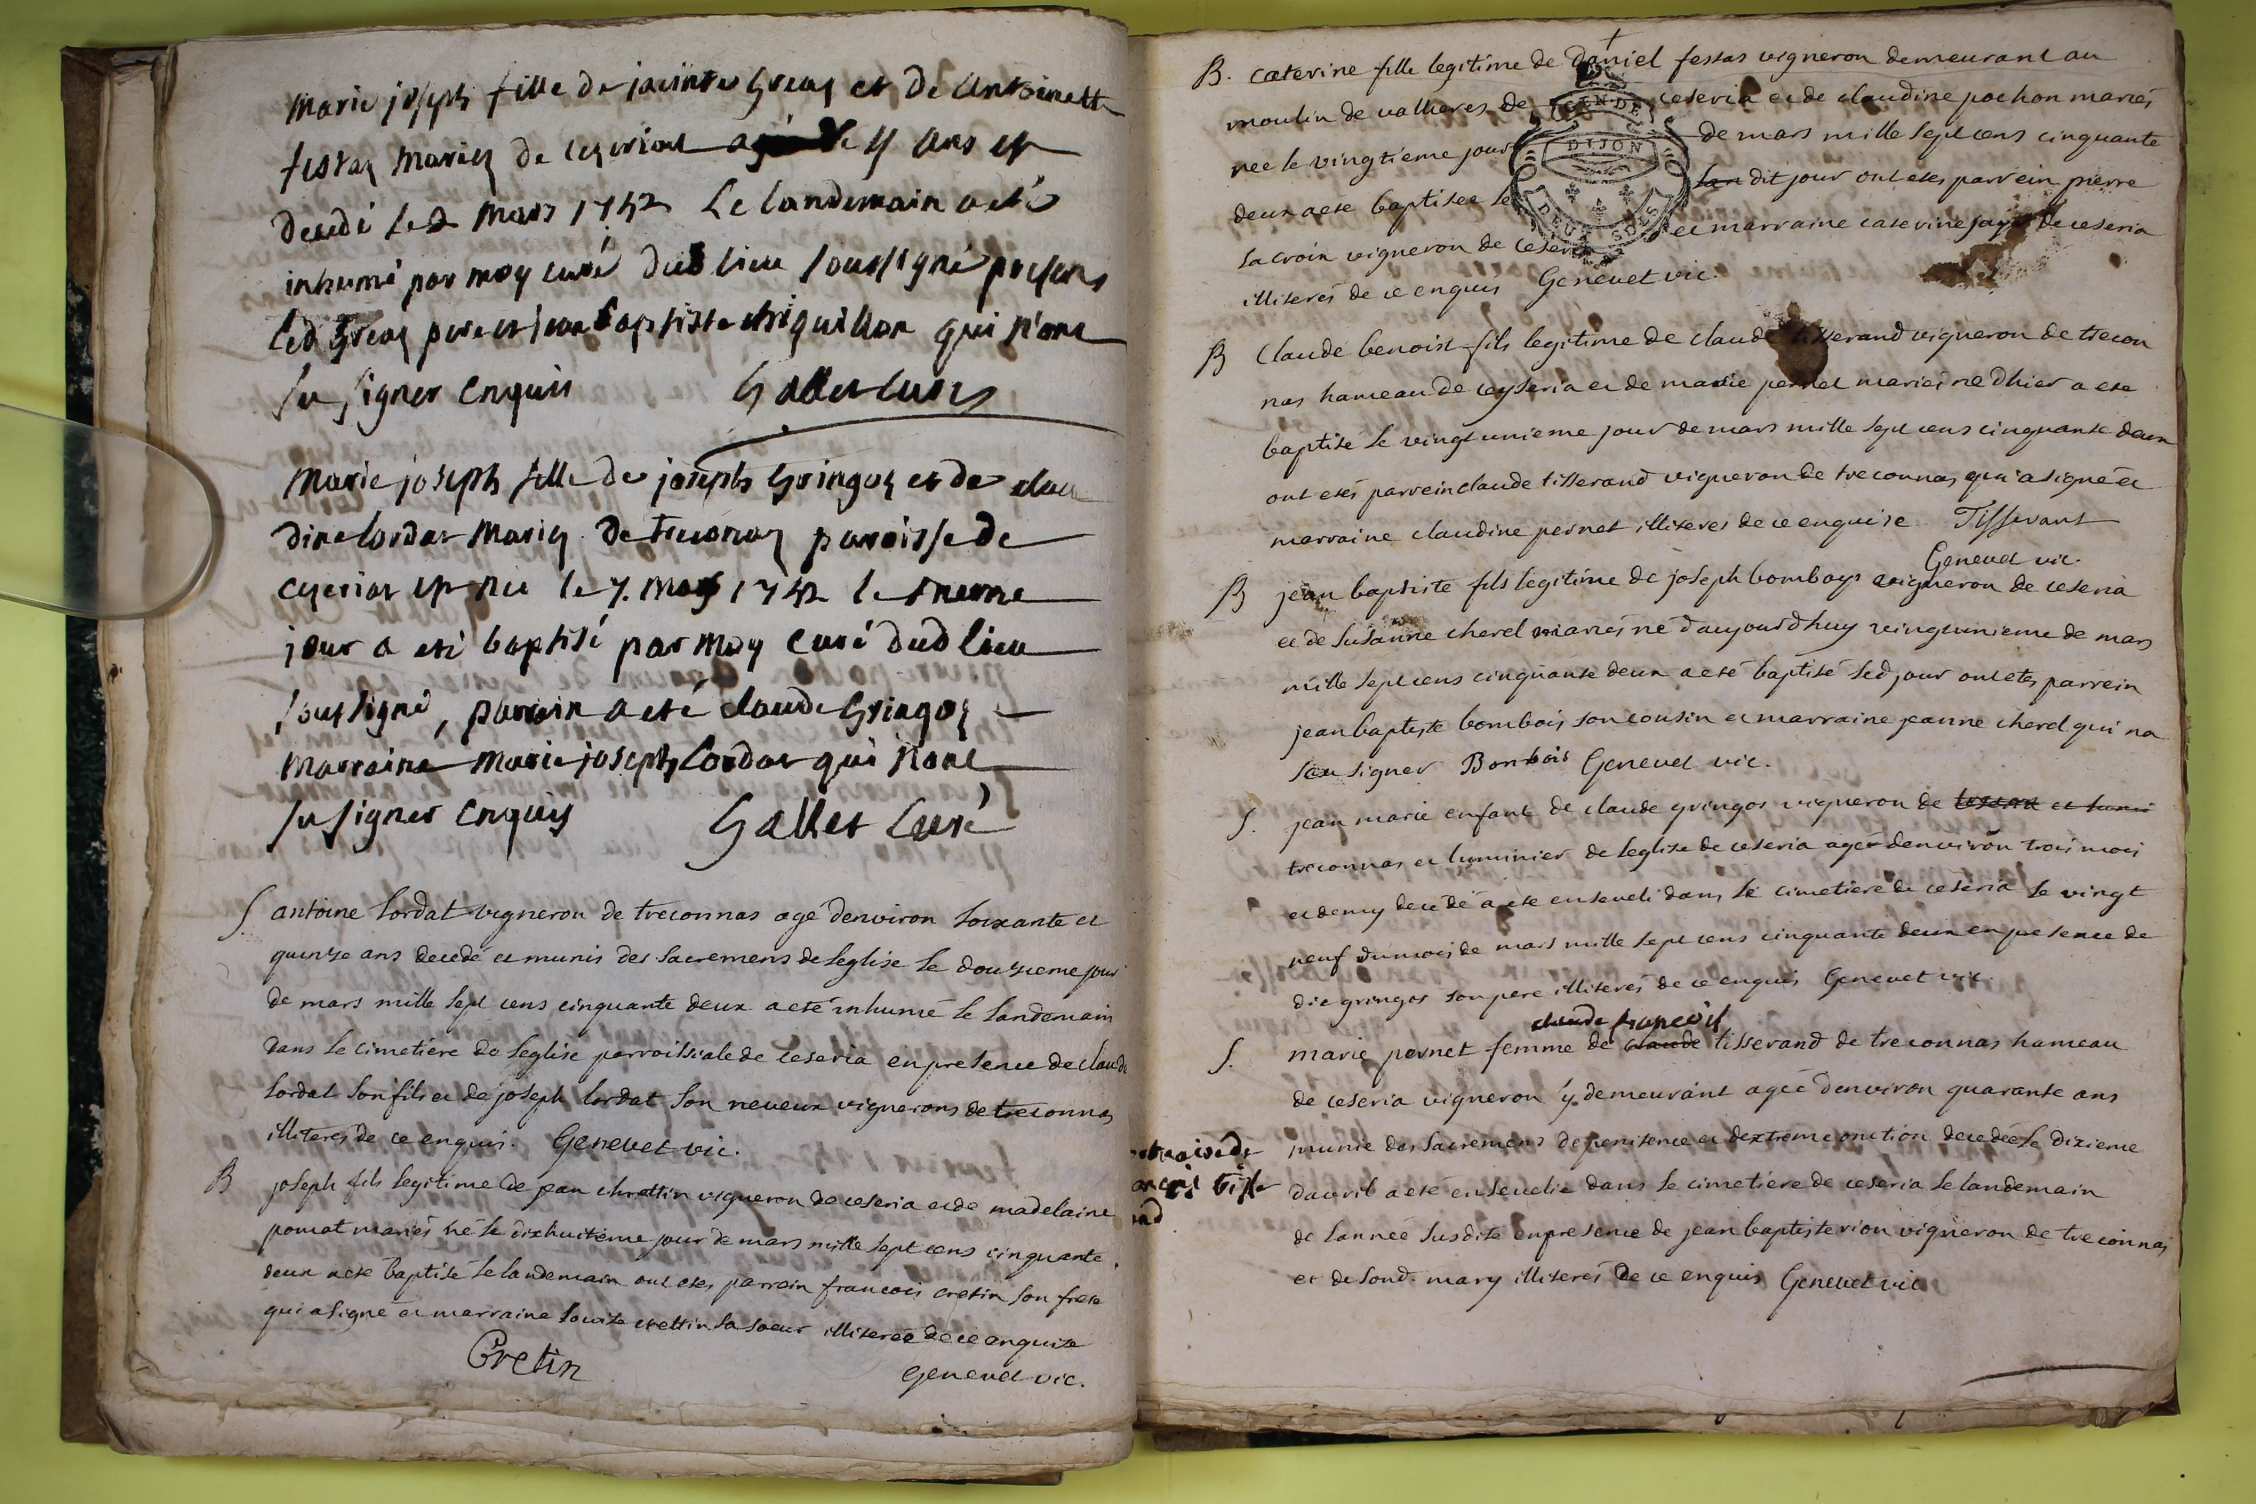 Marie joseph fille de jacinte Greag et de Antoinette
festas Mariez de ceyseriat agé de 4 ans est
decedé le 2 Mars 1752 Le landemain a eté
inhumé par moy curé dud lieu soussigné presens
led Greag pere et jean Baptiste chiquillon qui n'ont
su signer enquis Gallet curé
Marie joseph fille de joseph Gringoz et de clau
dine lordat Mariez de treconaz paroisse de
ceyseriat est née le 7. mars 1752 le meme
jour a eté baptisé par moy curé dud lieu
soussigné, parrain a eté claude Gringoz
Marraine Marie joseph Lordat qui n'ont
su signer enquis Gallet Curé
S. antoine Lordat vigneron de treconnas agé denviron soixante et
quinze ans decedé et munis des Sacremens de leglise le douzieme jour
de mars mille sept cens cinquante deux a eté inhumé le landemain
dans le cimetiere de leglise parroissiale de ceseria en presence de claude
Lordat son fils et de joseph lordat son neveux vignerons de treconnas
illiteres de ce enquis. Genevet vic.
B joseph fils legitime de jean chrettin vigneron de ceseria et de madelaine
pomat mariés né le dixhuitieme jour de mars mille sept cens cinquante
deux a eté baptisé le landemain ont etes parrain francois cretin son frere
qui a signé et marraine Louise crettin sa soeur illiterée de ce enquise
Cretin
Genevet vic.
B. Caterine fille legitime de Daniel festas vigneron demeurant au
moulin de vallieres de ceseria et de claudine pochon mariés
née le vingtieme jour de mars mille sept cens cinquante
deux a eté baptisée le dit jour ont etes parrein pierre
Lacroix vigneron de ceseria et marraine caterine de ceseria
illiterés de ce enquis Genevet vic.
DIJON
DEUX SOLS
B Claude benoist fils legitime de claude tisserand vigneron de trecon
nas hameau de ceyseria et de marie pernet mariés né dhier a eté
baptisé le vingt unieme jour de mars mille sept cens cinquante deux
ont etés parrein claude tisserand vigneron de treconnas qui a signé et
marraine claudine pernet illiteres de ce enquise Tisserant
Genevet vic.
B jean baptiste fils legitime de joseph bomboys vigneron de ceseria
et de Susanne cherel mariés né daujourdhuy vingtunieme de mars
mille sept cens cinquante deux a eté baptisé led jour ont etes parrein
jean baptiste bombois son cousin et marraine jeanne cherel qui na
sceu signer Bonbois Genevet vic.
S. jean marie enfant de claude gringos vigneron de
treconnas et luminier de leglise de ceseria agée denviron trois mois
et demy decedé a eté enseveli dans le cimetiere de ceseria le vingt
neuf du mois de mars mille sept cens cinquante deux en presence de
dit gringos son pere illiterés de ce enquis Genevet vic.
claude francois
S. marie pernet femme de claude tisserand de treconnas hameau
de ceseria vigneron y demeurant agée denviron quarante ans
munie des Sacremens de penitence et dextreme onction decedée le dixieme
davril a eté ensevelie dans le cimetiere de ceseria le landemain
de lannée susdite en presence de jean baptiste rion vigneron de treconnas
et de sond. mary illiterés de ce enquis Genevet vic